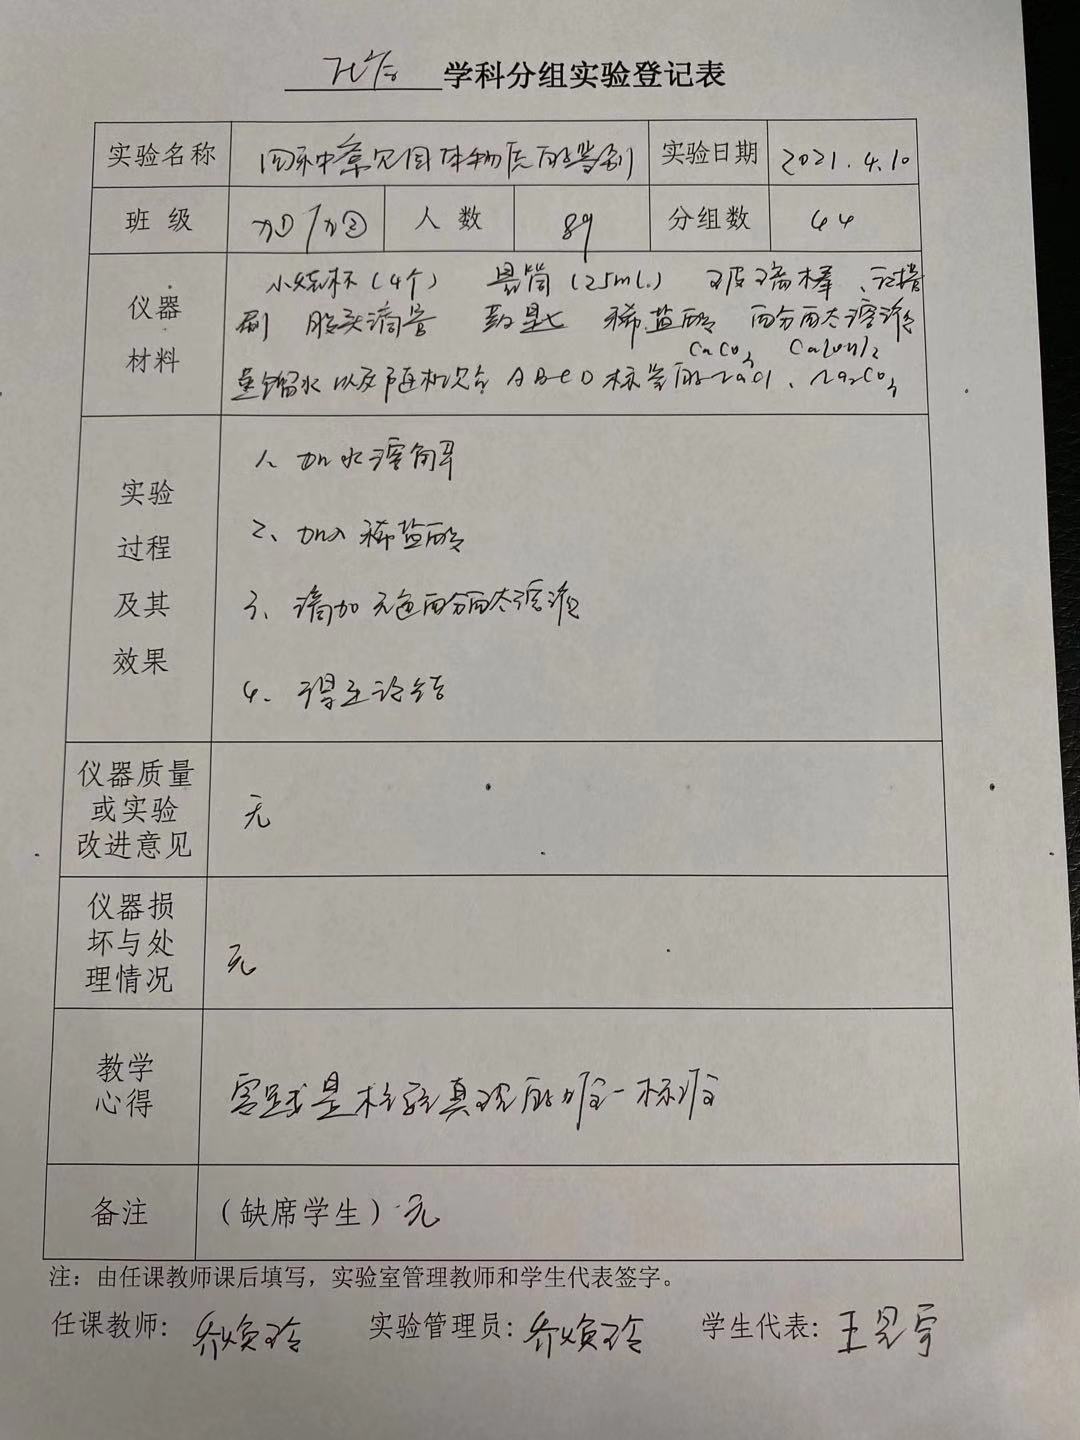 化学 学科分组实验登记表
实验名称 四种中常见固体物质的鉴别 实验日期 2021.4.10
班 级 九① 九② 人 数 89 分组数 44
仪器材料 小烧杯(4个) 量筒(25mL) 玻璃棒、试管
刷 胶头滴管 药匙 稀盐酸 酚酞溶液
CaCO3 Ca(OH)2
蒸馏水 以及随机混合ABCD标签的NaCl、Na2CO3
实验过程及其效果 1、加水溶解
2、加入稀盐酸
3、滴加无色酚酞溶液
4、得出结论
仪器质量或实验改进意见 无
仪器损坏与处理情况 无
教学心得 实践是检验真理的唯一标准
备注 (缺席学生) 无
注：由任课教师课后填写，实验室管理教师和学生代表签字。
任课教师：乔焕玲 实验管理员：乔焕玲 学生代表：王